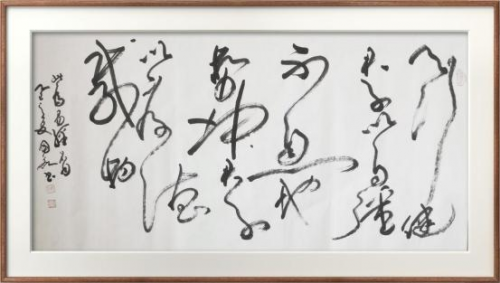 天行健
君子以自強
不息地
勢坤君子
以厚德
載物